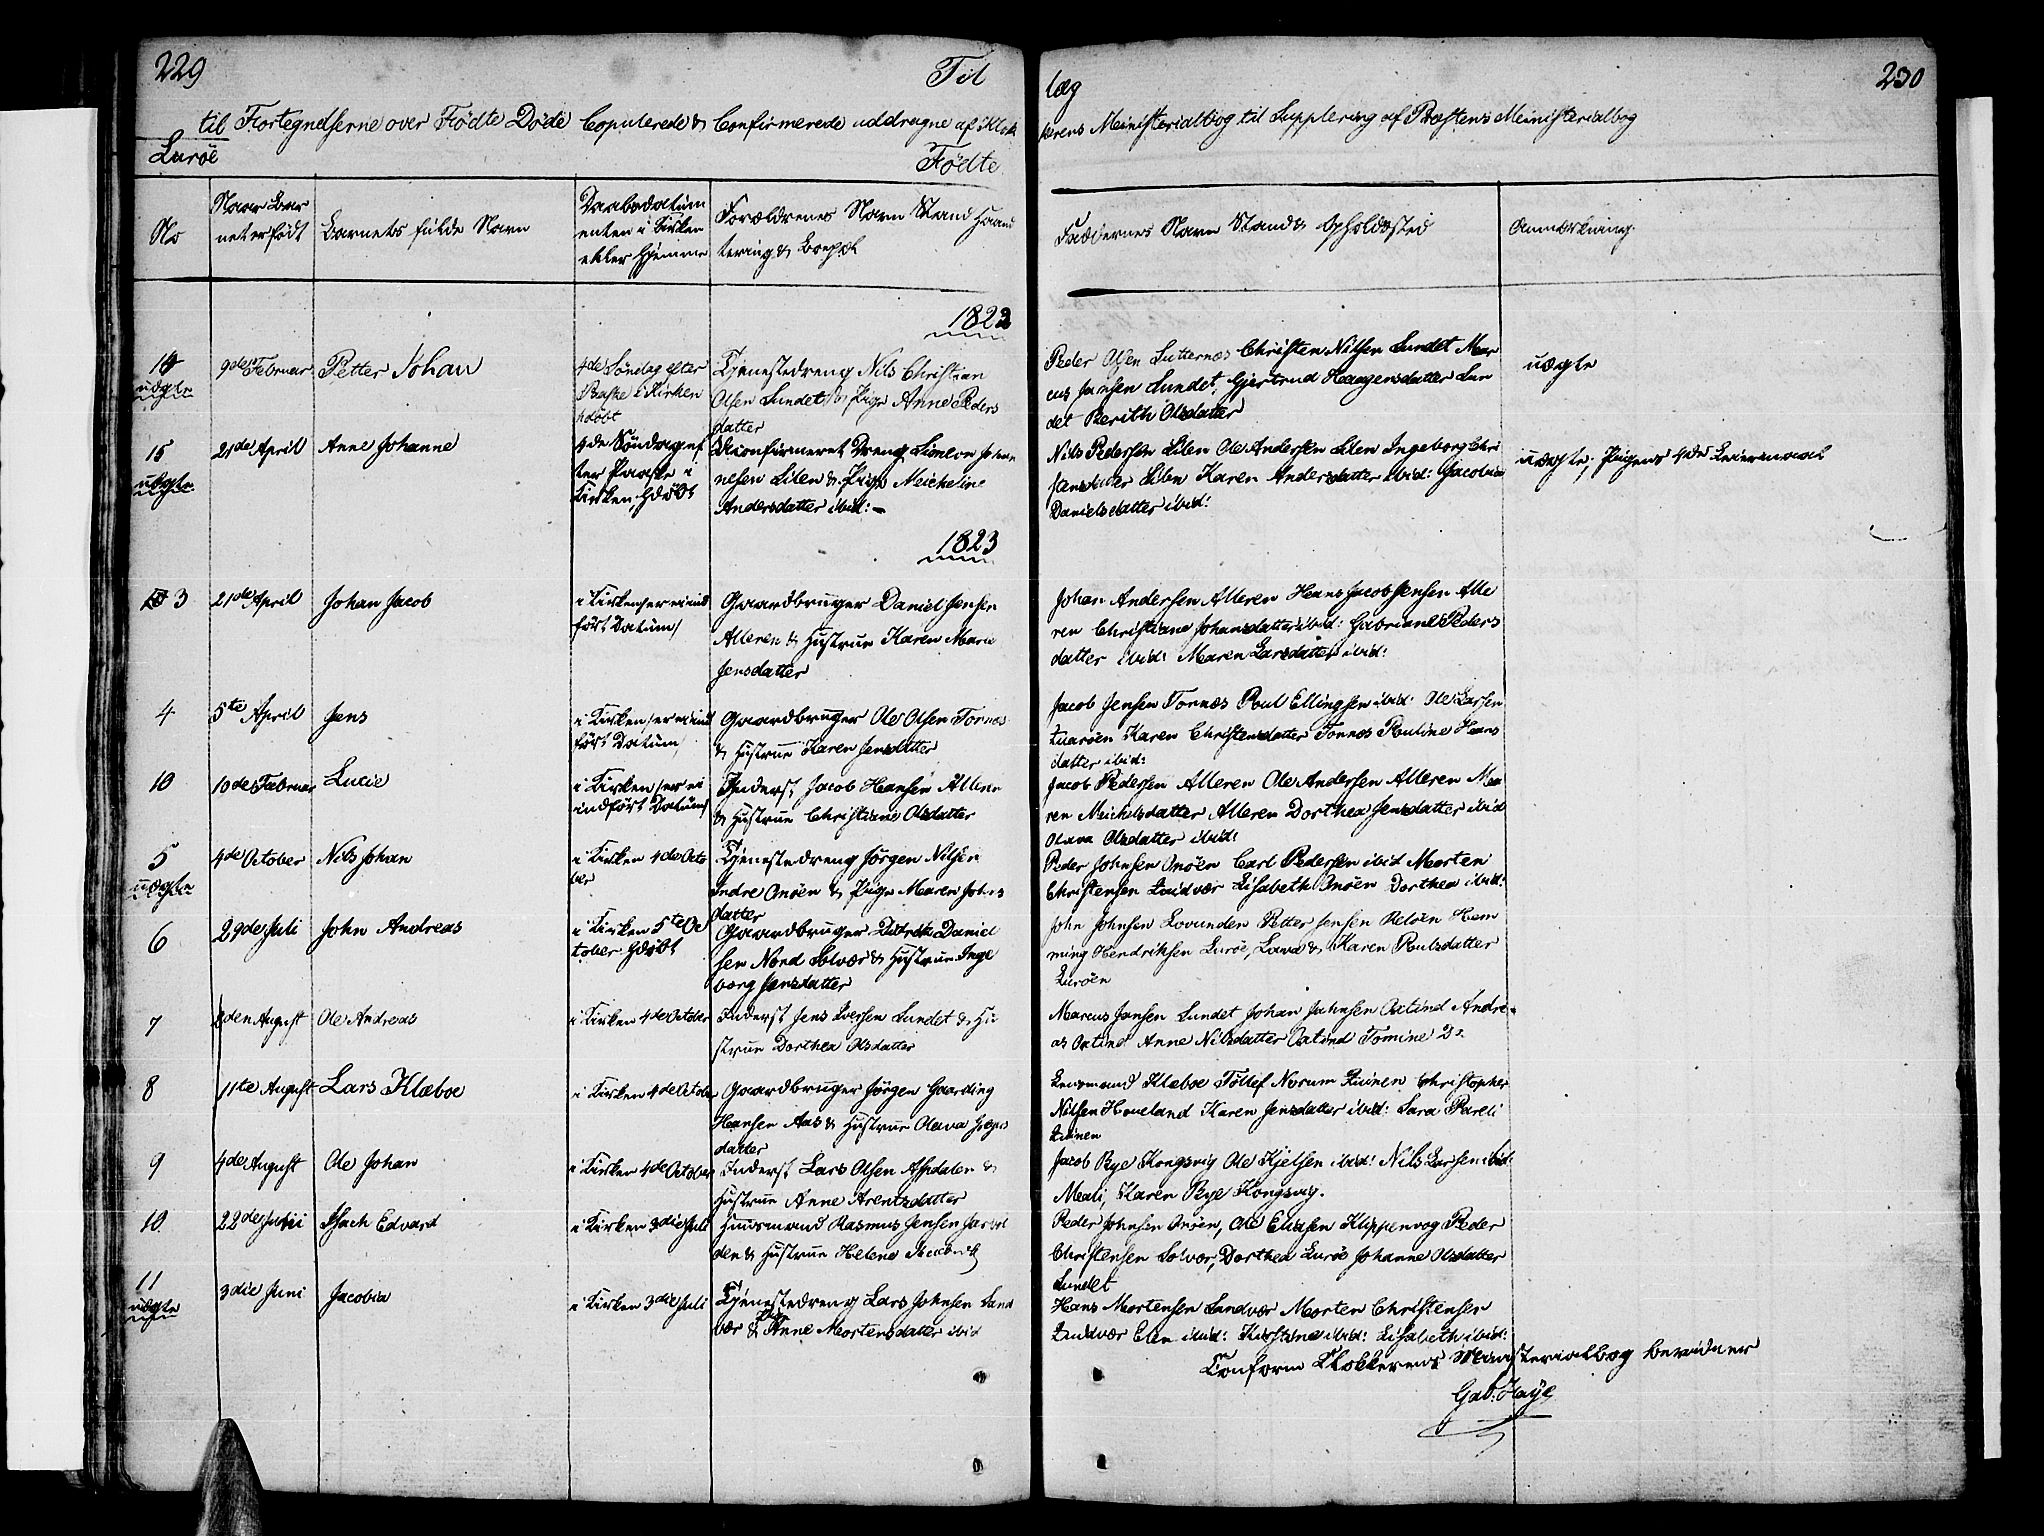 229
Til
læg
230
til Fortegnelserne over Fødte Døde Copulerede & Confirmerede uddragne af Klok
kerens Ministerialbog til Supplering af Præstens Ministerialbog
Lurøe
Fødte
No
Naar Bar
net er født
Barnets fulde Navn
Daabsdatum
enten i Kirken
eller hjemme
Forældrenes Navn Stand Haand
tering & Bopæl
Faddernes Navn Stand & Opholdssted
Anmærkning
1822
14
uægte
9de Februar
Petter Johan
4de Søndag efter
Paaske i Kirken
hdøbt
Tjenestedreng Nils Christian
Olsen Sundet & Pige Anne Peders
datter
Peder Olsen Christen Nilsen Sundet Mar
cus Jansen Sundet, Gjertrud Haagensdatter Sun
det Berith Olsdatter
uægte
15
uægte
21de April
Anne Johanne
4de Søndag ef
ter Paaske i
Kirken, hdøbt
Ukonfirmeret Dreng Simeon Johan
nesen Lilen & Pige Micheline
Andersdatter ibid:
Nils Pedersen Lilen Ole Andersen Lilen Ingeborg Chri
stensdatter Lilen Karen Andersdatter ibid: Jacobia
Danielsdatter ibid:
uægte, Pigens 4de Leiermaal
1823
3
21de April
Johan Jacob
i Kirken er ei ind
ført Datum/
Gaardbruger Daniel Jensen
Alleren & Hustrue Karen Marie
Jensdatter
Johan Andersen Alleren Hans Jacob Jensen Alle
ren Christiane Johansdatter ibid: Gabriane Peders
datter ibid: Maren Larsdatter ibid:
4
5te April
Jens
i Kirken /er ei ind
ført Datum/
Gaardbruger Ole Olsen Tornes
& Hustrue Karen Jensdatter
Jacob Jensen Tonnes Poul Ellingsen ibid: Ole Larsen
Karen Christensdatter Tonnes Pauline Hans
datter ibid:
10
10de Februar
Lucie
i Kirken /er ei
indført Datum/
Inderst Jacob Hansen Alleren
& Hustrue Christiane Olsdatter
Jacob Pedersen Alleren Ole Andersen Alleren Ma
ren Michelsdatter Alleren Dorthea Jensdatter ibid
Olava Olsdatter ibid:
5
uægte
4de October
Nils Johan
i Kirken 4de Octo
ber
Tjenestedreng Jørgen Nilsen
Indre Onøen & Pige Maren Johns
datter
Peder Johnsen Onøen Carl Pedersen ibid Morten
Christensen Lisabeth Onøen Dorthea ibid:
6
29de Juli
John Andreas
i Kirken 5te Oc
tober hdøbt
Gaardbruger Didrik Daniel
sen Nord Solvær & Hustrue Inge
borg Jensdatter
John Johnsen Lovunden Petter Jensen Hem
ming Hendriksen Lurøe, Lava & Karen Poulsdatter
Lurøen
7
8den August
Ole Andreas
i Kirken 4de October
Inderst Jens Iversen Sundet & Hu
strue Dorthea Olsdatter
Marcus Jansen Sundet Johan Johnsen Oxtind Andre
as Oxtind Anne Nilsdatter Oxtind Tomine Do
8
11te August
Lars Klæboe
i Kirken 4de October
Gaardbruger Jørgen Gaarding
Hansen Aas & Hustrue Olava
datter
Lensmand Klæboe Tollef Norum Christopher
Nilsen Hoveland Karen Jensdatter ibid: Sara Pareli
9
4de August
Ole Johan
i Kirken 4de October
Inderst Lars Olsen Aspdalen &
Hustrue Anne Arentsdatter
Jacob Bye Kongsvig Ole Kjelsen ibid: Nils Larsen ibid
Karen Bye Kongsvig.
10
22de Juni
Isach Edvard
i Kirken 3die Juli
Huusmand Rasmus Jensen
den & Hustrue Helene
Peder Johnsen Onøen, Ole Eliasen Klippenvog Peder
Christensen Solvær, Dorthea Lurøe Johanne Olsdatter
Sundet
11
uægte
3die Juni
Jacobia
i Kirken 3die Juli
Tjenestedreng Lars Johnsen Sand
vær & Pige Anne Mortensdatter ibid
Hans Mortensen Sandvær Morten Christensen
Sandvær Elen ibid: Kirstine ibid: Lisabeth ibid:
Conform Klokkerens Ministerialbog bevidner
Gab. Høye